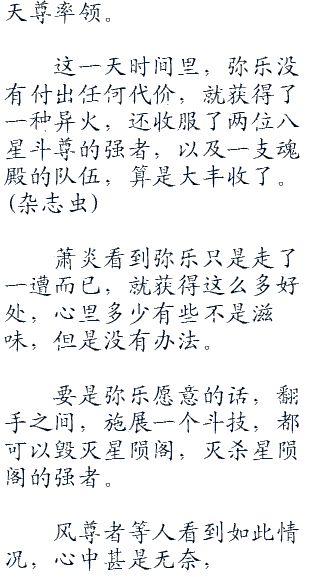 天尊率领。
这一天时间里，弥乐没
有付出任何代价，就获得了
一种异火，还收服了两位八
星斗尊的强者，以及一支魂
殿的队伍，算是大丰收了。
(杂志虫)
萧炎看到弥乐只是走了
一遭而已，就获得这么多好
处，心里多少有些不是滋
味，但是没有办法。
要是弥乐愿意的话，翻
手之间，施展一个斗技，都
可以毁灭星陨阁，灭杀星陨
阁的强者。
风尊者等人看到如此情
况，心中甚是无奈，